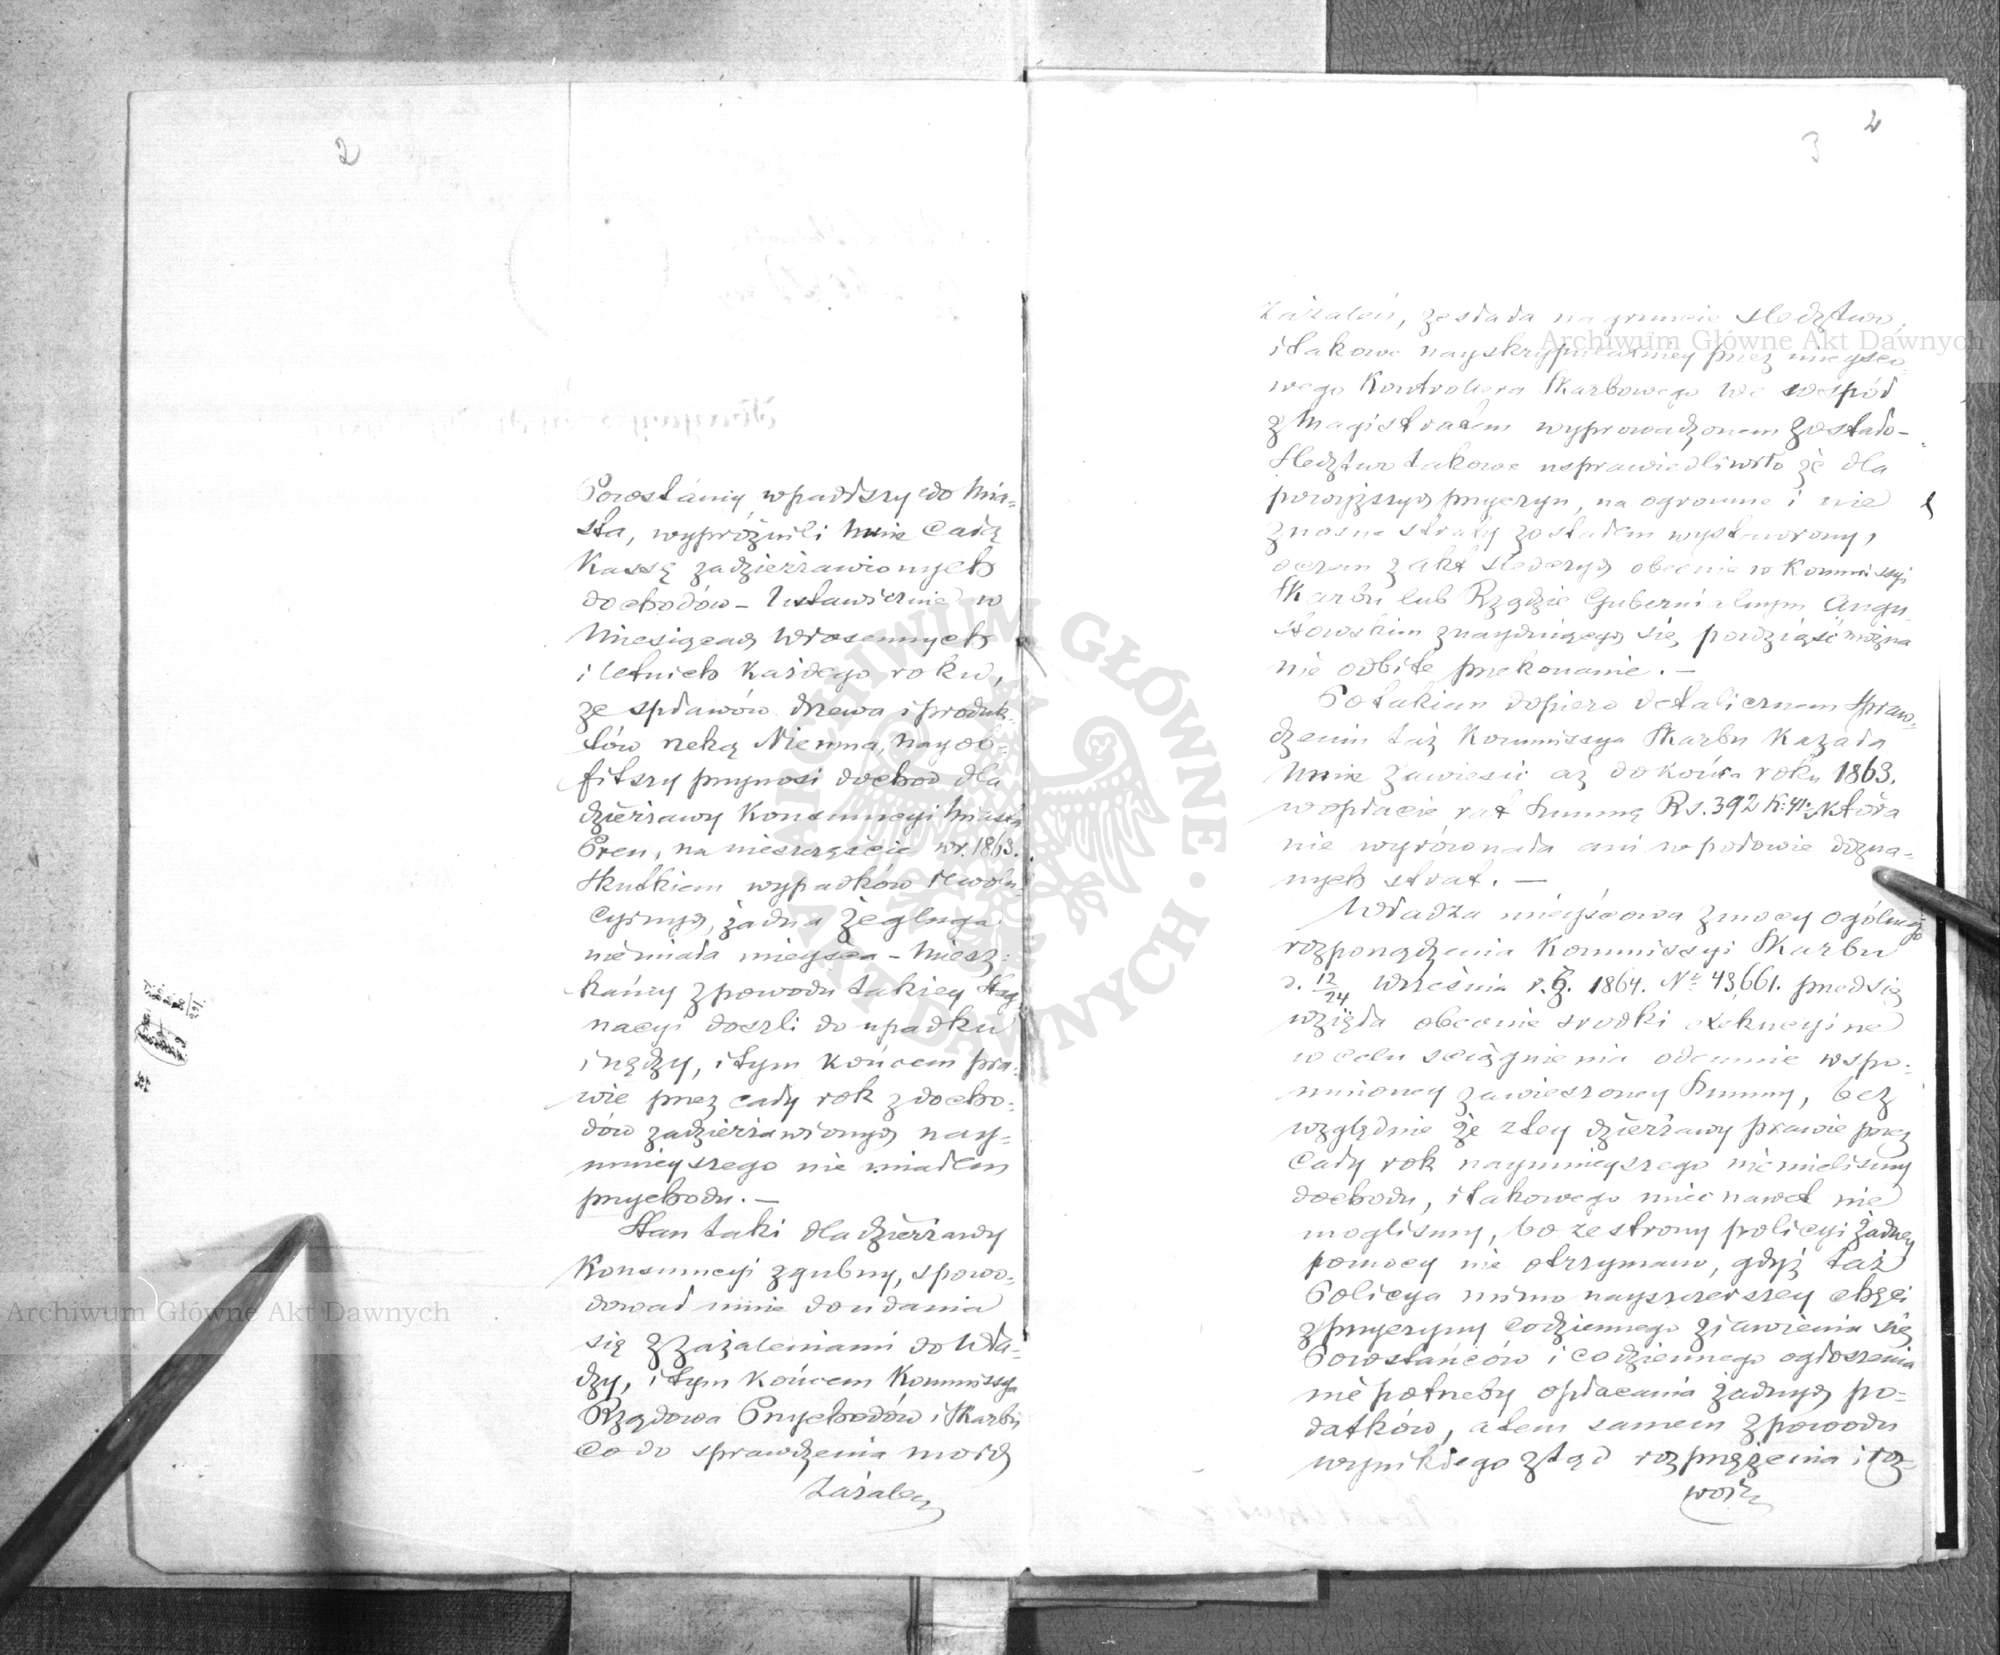 2
Powstańcy wpadłszy do Mia=
sta, wypróżnili mnie całą
Kassę zadzierżawionych
dochodów – Ustawicznie w
Miesiącach Wiosennych
i letnich każdego roku,
ze spławów drzewa i produk=
tów rzeką Niemna, nayob=
fitszy przynosi dochod dla
dzierżawy Konsumcyi Miasta
Pren, na nieszczęście w r. 1863.
skutkiem wypadków rewolu=
cyinych, żadna żegluga
niemiała mieysca – Miesz=
kańcy z powodu takiey Stag=
nacyi doszli do upadku
i nędzy, i tym końcem pra=
wie przez cały rok z docho=
dów zadzierżawionych nay=
mnieyszego nie miałem
przychodu. –
Stan taki dla dzierżawy
Konsumcyi zgubny, spowo=
dował mnie do udania
się z zażaleniami do Wła=
dzy, i tym końcem Kommissya
Rządowa Przychodów i Skarbu
co do sprawdzenia moich
Zażaleń
3
Zażaleń, zesłała na gruncie śledztwo,
i takowe nayskrypulatniey przez mieysco=
wego Kontrollera Skarbowego we wespół
z Magistratem wyprowadzonem zostało –
Sledztwo takowe usprawiedliwiło że dla
powyższych przyczyn, na ogromne i nie
znosne straty zostałem wystawiony,
oczem z akt śledczych obecnie w Kommissyi
Skarbu lub Rządzie Gubernialnym Augu=
stowskim znayduiących się powziąść można
nie odbite przekonanie. –
Po takiem dopiero detalicznem spraw=
dzeniu taż Kommissya Skarbu Kazała
mnie zawiesić aż do końca roku 1863.
w opłacie rat Summę Rs. 392 K: 41. która
nie wyrównała ani w połowie dozna=
nych strat. –
Władza mieyscowa z mocy ogólnego
rozporządzenia Kommissyi Skarbu
d. 12/24 Września r. z. 1864. Nº 43,661. przedsię
wzięła obecnie srodki exekucyine
w celu sciągnienia odemnie wspo=
mnioney zawieszoney Summy, bez
względnie że z tey dzierżawy prawie przez
cały rok naymnieyszego niemieliśmy
dochodu, i takowego mieć nawet nie
mogliśmy, bo ze strony policyi żadney
pomocy nie otrzymano, gdyż taż
Policya mimo nayszczerszey chęci
z przyczyny codziennego ziawienia się
Powstańców i codziennego ogłoszenia
nie potrzeby opłacania żadnych po=
datków, a tem samem z powodu
wynikłego ztąd rozprzężenia i roz=